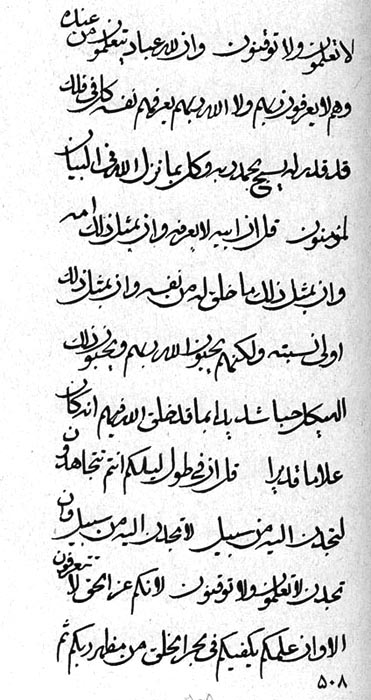 لا تعلمون ولا توقنون وان لله عباد يتعلمون من عنده
وهم لا يعرفون ربهم ولا الله ربهم يعرفهم نفسه كل في فلك
قد قدر له يسبح بحمد ربه وكل بما نزل الله في البيان
لمؤمنون قل ان ابيه لا يعرفه وان بمثل ذلك امه
وان بمثل ذلك ما خلق له من نفسه وان بمثل ذلك
اولى نسبته ولكنهم يحبون الله ربهم ويحبون ذلك
الهيكل حبا شديدا بما قد خلق الله فيهم انه كان
علاما قديرا قل ان في طول ليلكم انتم تتجاهدون
لتجدن اليه من سبيل لا تجدن اليه من سبيل وان
تجدن لا تعلمون ولا توقنون لانكم عن الحق لا تتعرفون
الا وان علمكم يكفيكم في بحر الخلق من مظهر ربكم ثم
٥٠٨